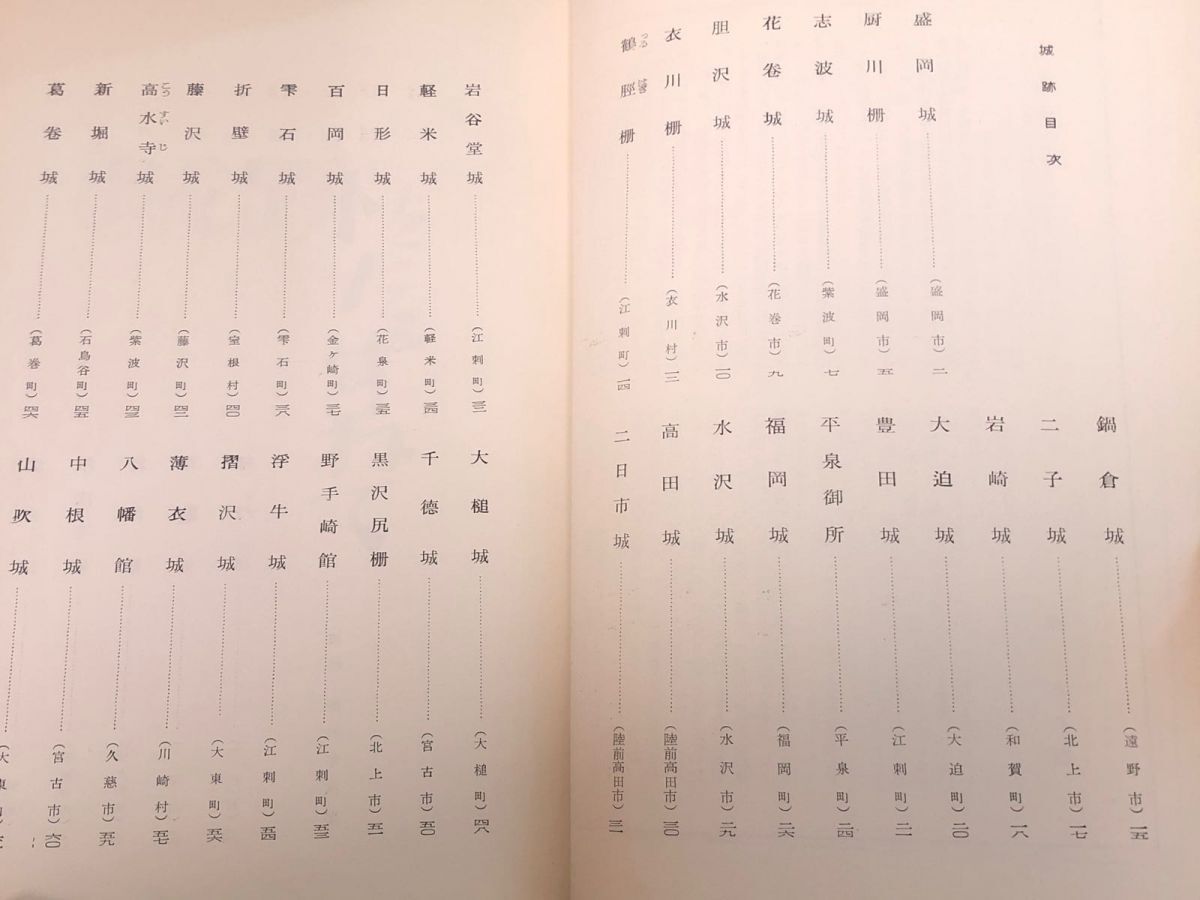 城跡目次
盛岡城……………（盛岡市）二
厨川柵……………（盛岡市）五
志波城……………（紫波町）七
花巻城……………（花巻市）九
胆沢城……………（水沢市）一〇
衣川柵……………（衣川村）一二
鶴脛柵……………（江刺町）一四
鍋倉城……………（遠野市）一五
二子城……………（北上市）一七
岩崎城……………（和賀町）一八
大迫城……………（大迫町）二〇
豊田城……………（江刺町）二二
平泉御所……………（平泉町）二四
福岡城……………（福岡町）二六
水沢城……………（水沢市）二九
高田城……………（陸前高田市）三〇
二日市城……………（陸前高田市）三一
岩谷堂城……………（江刺町）三二
軽米城……………（軽米町）三四
日形城……………（花泉町）三五
百岡城……………（金ヶ崎町）三七
雫石城……………（雫石町）三八
折壁城……………（室根村）四〇
藤沢城……………（藤沢町）四二
高水寺城……………（紫波町）四三
新堀城……………（石鳥谷町）四五
葛巻城……………（葛巻町）四六
大槌城……………（大槌町）四八
千徳城……………（宮古市）五〇
黒沢尻柵……………（北上市）五一
野手崎館……………（江刺町）五三
浮牛城……………（江刺町）五四
摺沢城……………（大東町）五六
薄衣城……………（川崎村）五七
八幡館……………（久慈市）五九
中根城……………（宮古市）六〇
山吹城……………（大東